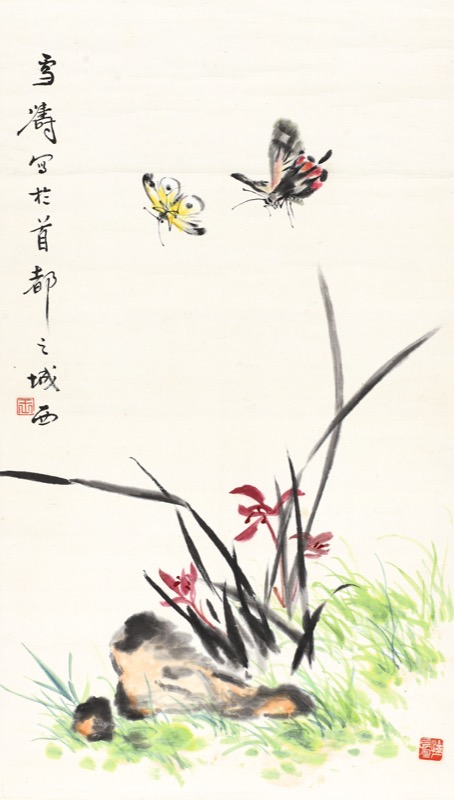 雪濤寫於首都之城西